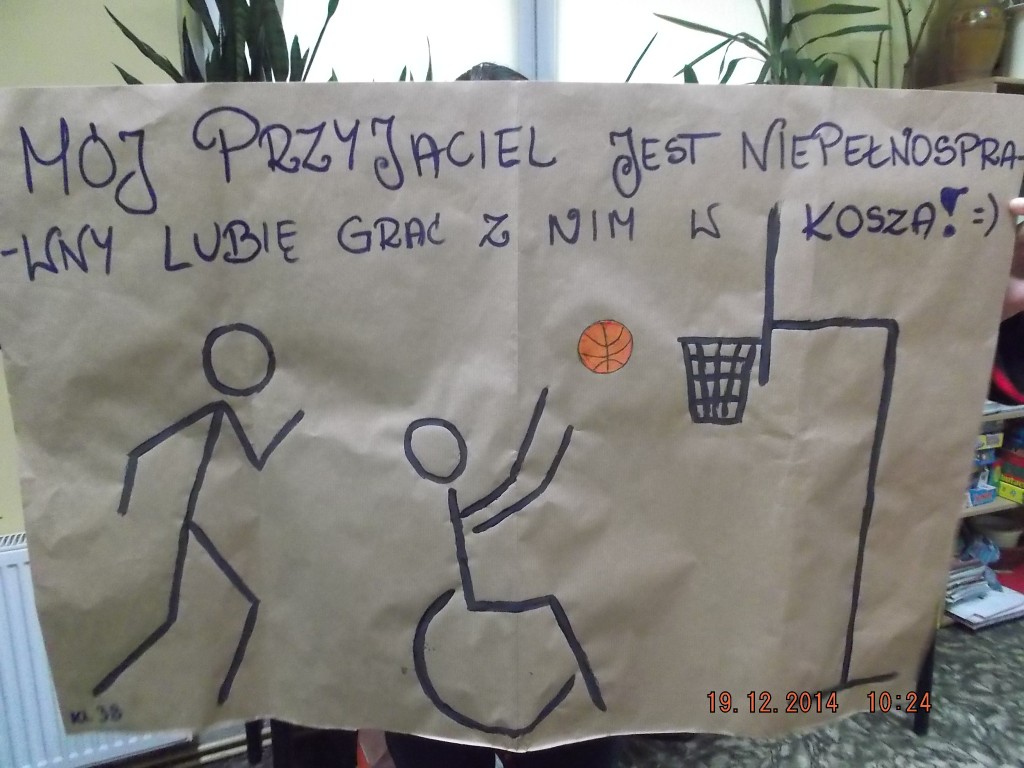 MÓJ PRZYJACIEL JEST NIEPEŁNOSPRA-
-WNY LUBIĘ GRAĆ Z NIM W KOSZA! =)
kl. 3B
19.12.2014 10:24